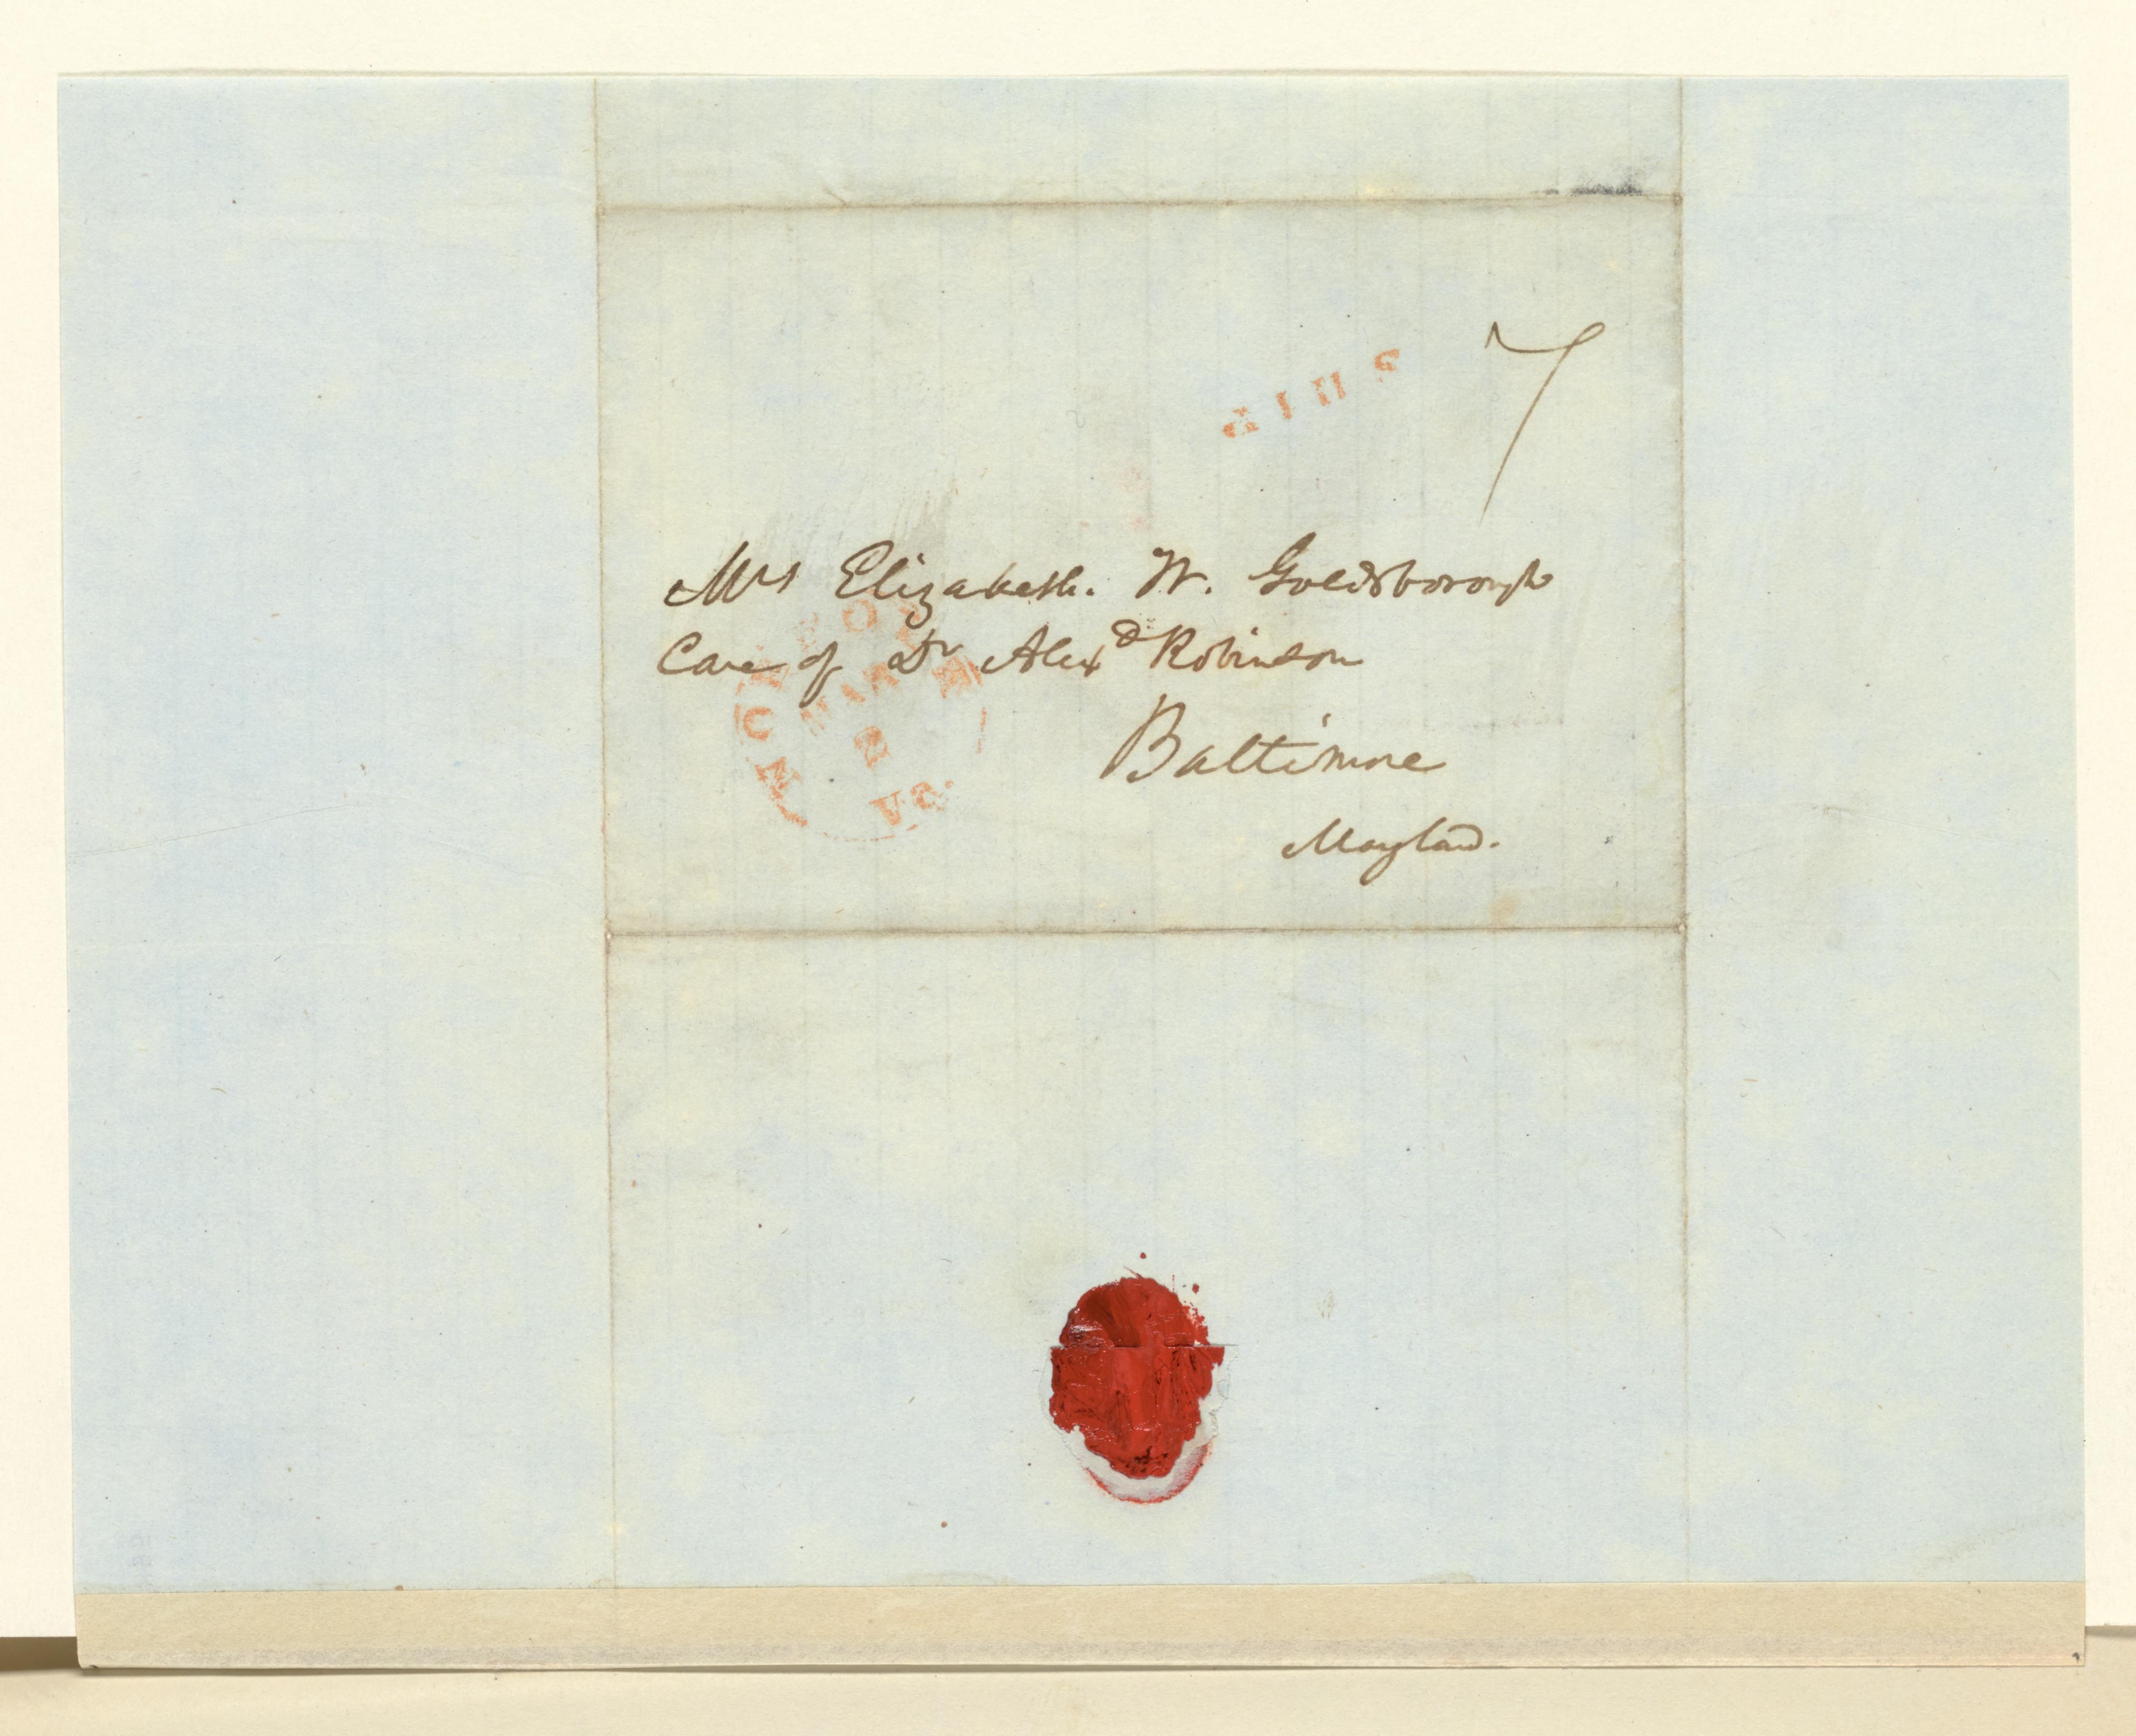 SHIP
7
Mrs Elizabeth. W. Goldsborough
Care of Dr Alexd Robinson
Baltimore
Maryland.
NORFOLK
MAR
Va.